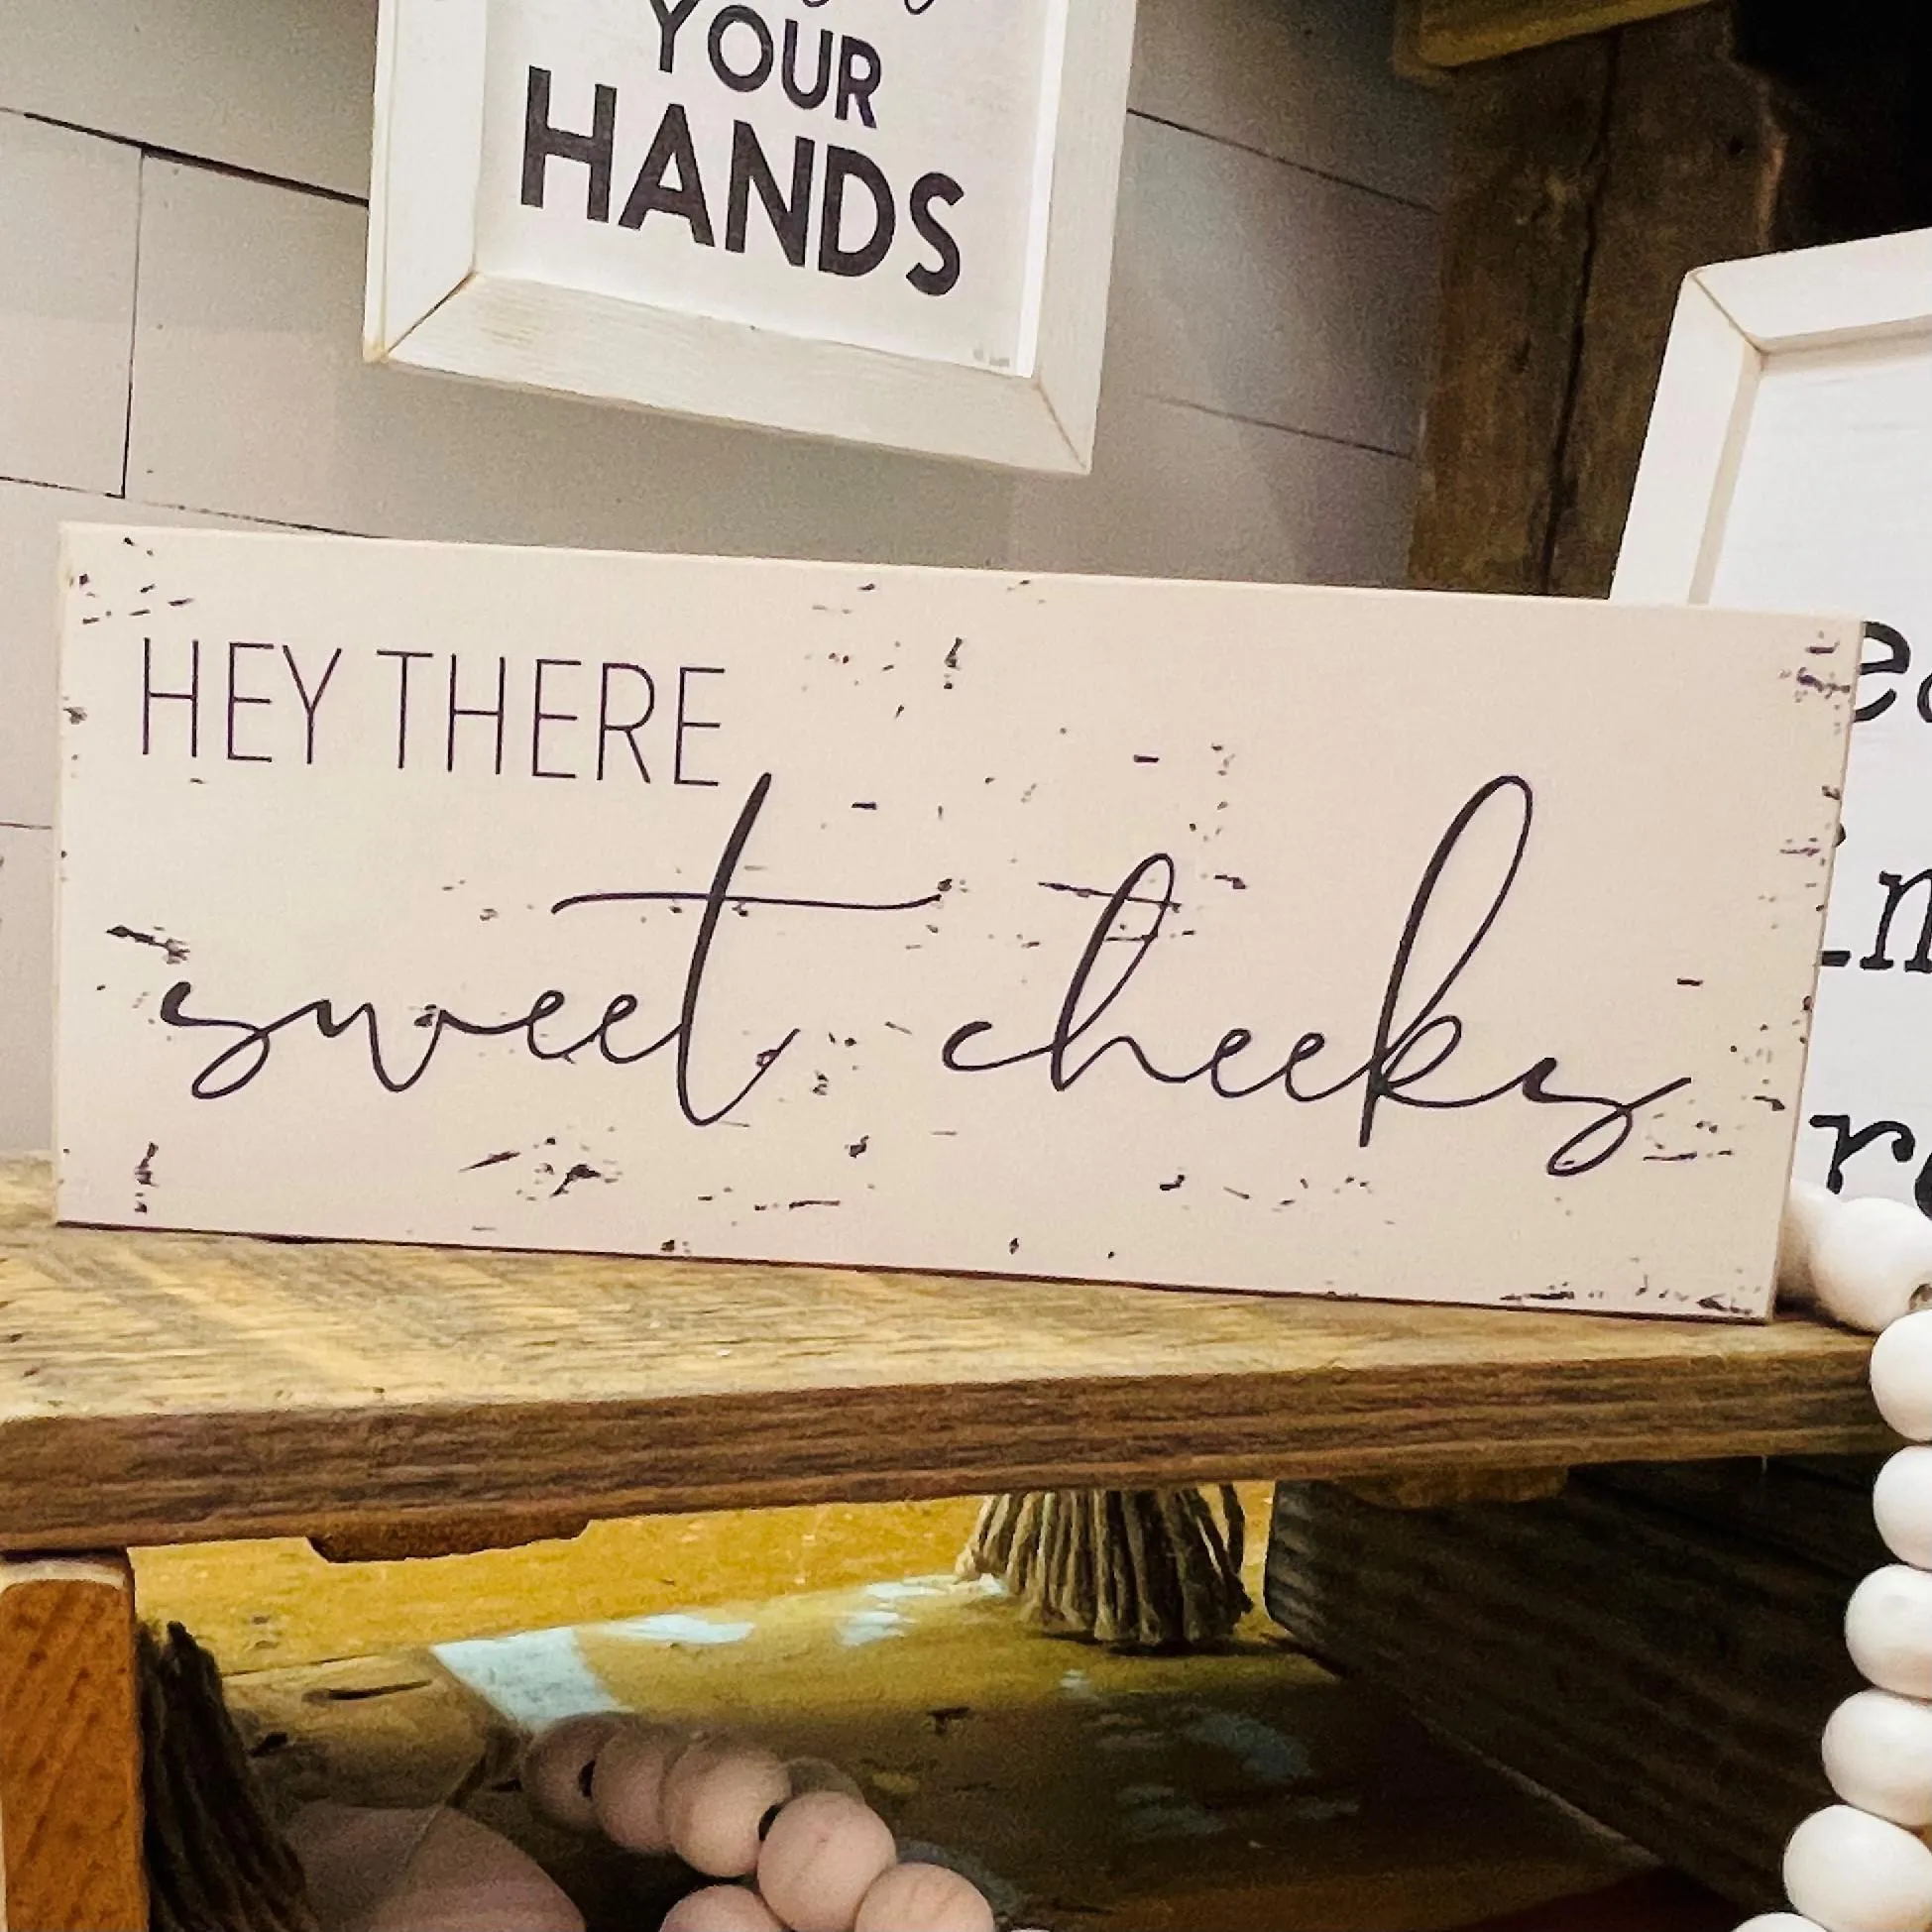 YOUR
HANDS
HEY THERE
sweet cheeks